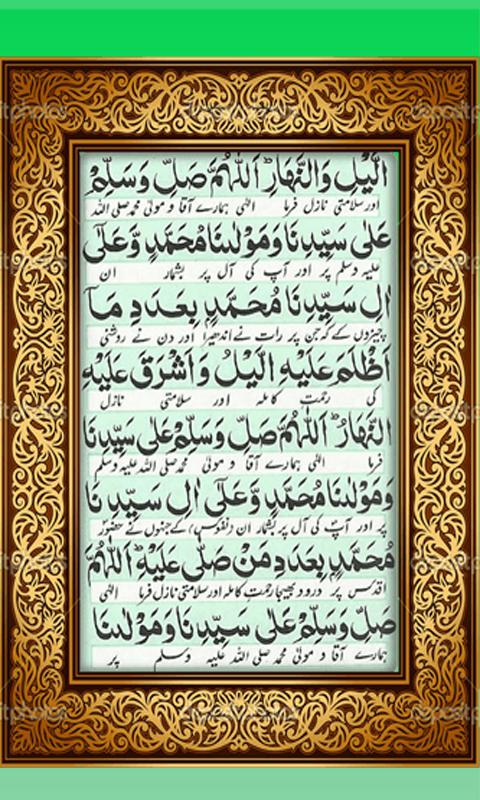 الَّيْلِ وَالنَّهَارِ ؕ اَللّٰهُمَّ صَلِّ وَسَلِّمْ
اور سلامتی نازل فرما الٰہی ہمارے آقا و مولیٰ محمد صلی اللہ
عَلٰى سَيِّدِنَا وَمَوْلٰىنَا مُحَمَّدٍ وَّعَلٰٓى
علیہ وسلم پر اور آپ کی آل پر بشمار ان
اٰلِ سَيِّدِنَا مُحَمَّدٍ بِعَدَدِ مَآ
چیزوں کے کہ جن پر رات نے اندھیرا اور دن نے روشنی
اَظْلَمَ عَلَيْهِ الَّيْلُ وَ اَشْرَقَ عَلَيْهِ
کی رحمت کاملہ اور سلامتی نازل
النَّهَارُ ؕ اَللّٰهُمَّ صَلِّ وَسَلِّمْ عَلٰى سَيِّدِنَا
فرما الٰہی ہمارے آقا و مولیٰ محمد صلی اللہ علیہ وسلم
وَمَوْلٰىنَا مُحَمَّدٍ وَّعَلٰٓى اٰلِ سَيِّدِنَا
پر اور آپ کی آل پر بشمار ان (نفوس) کے جنہوں نے حضور
مُحَمَّدٍ بِعَدَدِ مَنْ صَلّٰى عَلَيْهِ ؕ اَللّٰهُمَّ
اقدس پر درود بھیجا رحمت کاملہ اور سلامتی نازل فرما الٰہی
صَلِّ وَسَلِّمْ عَلٰى سَيِّدِنَا وَمَوْلٰىنَا
ہمارے آقا و مولیٰ محمد صلی اللہ علیہ وسلم پر